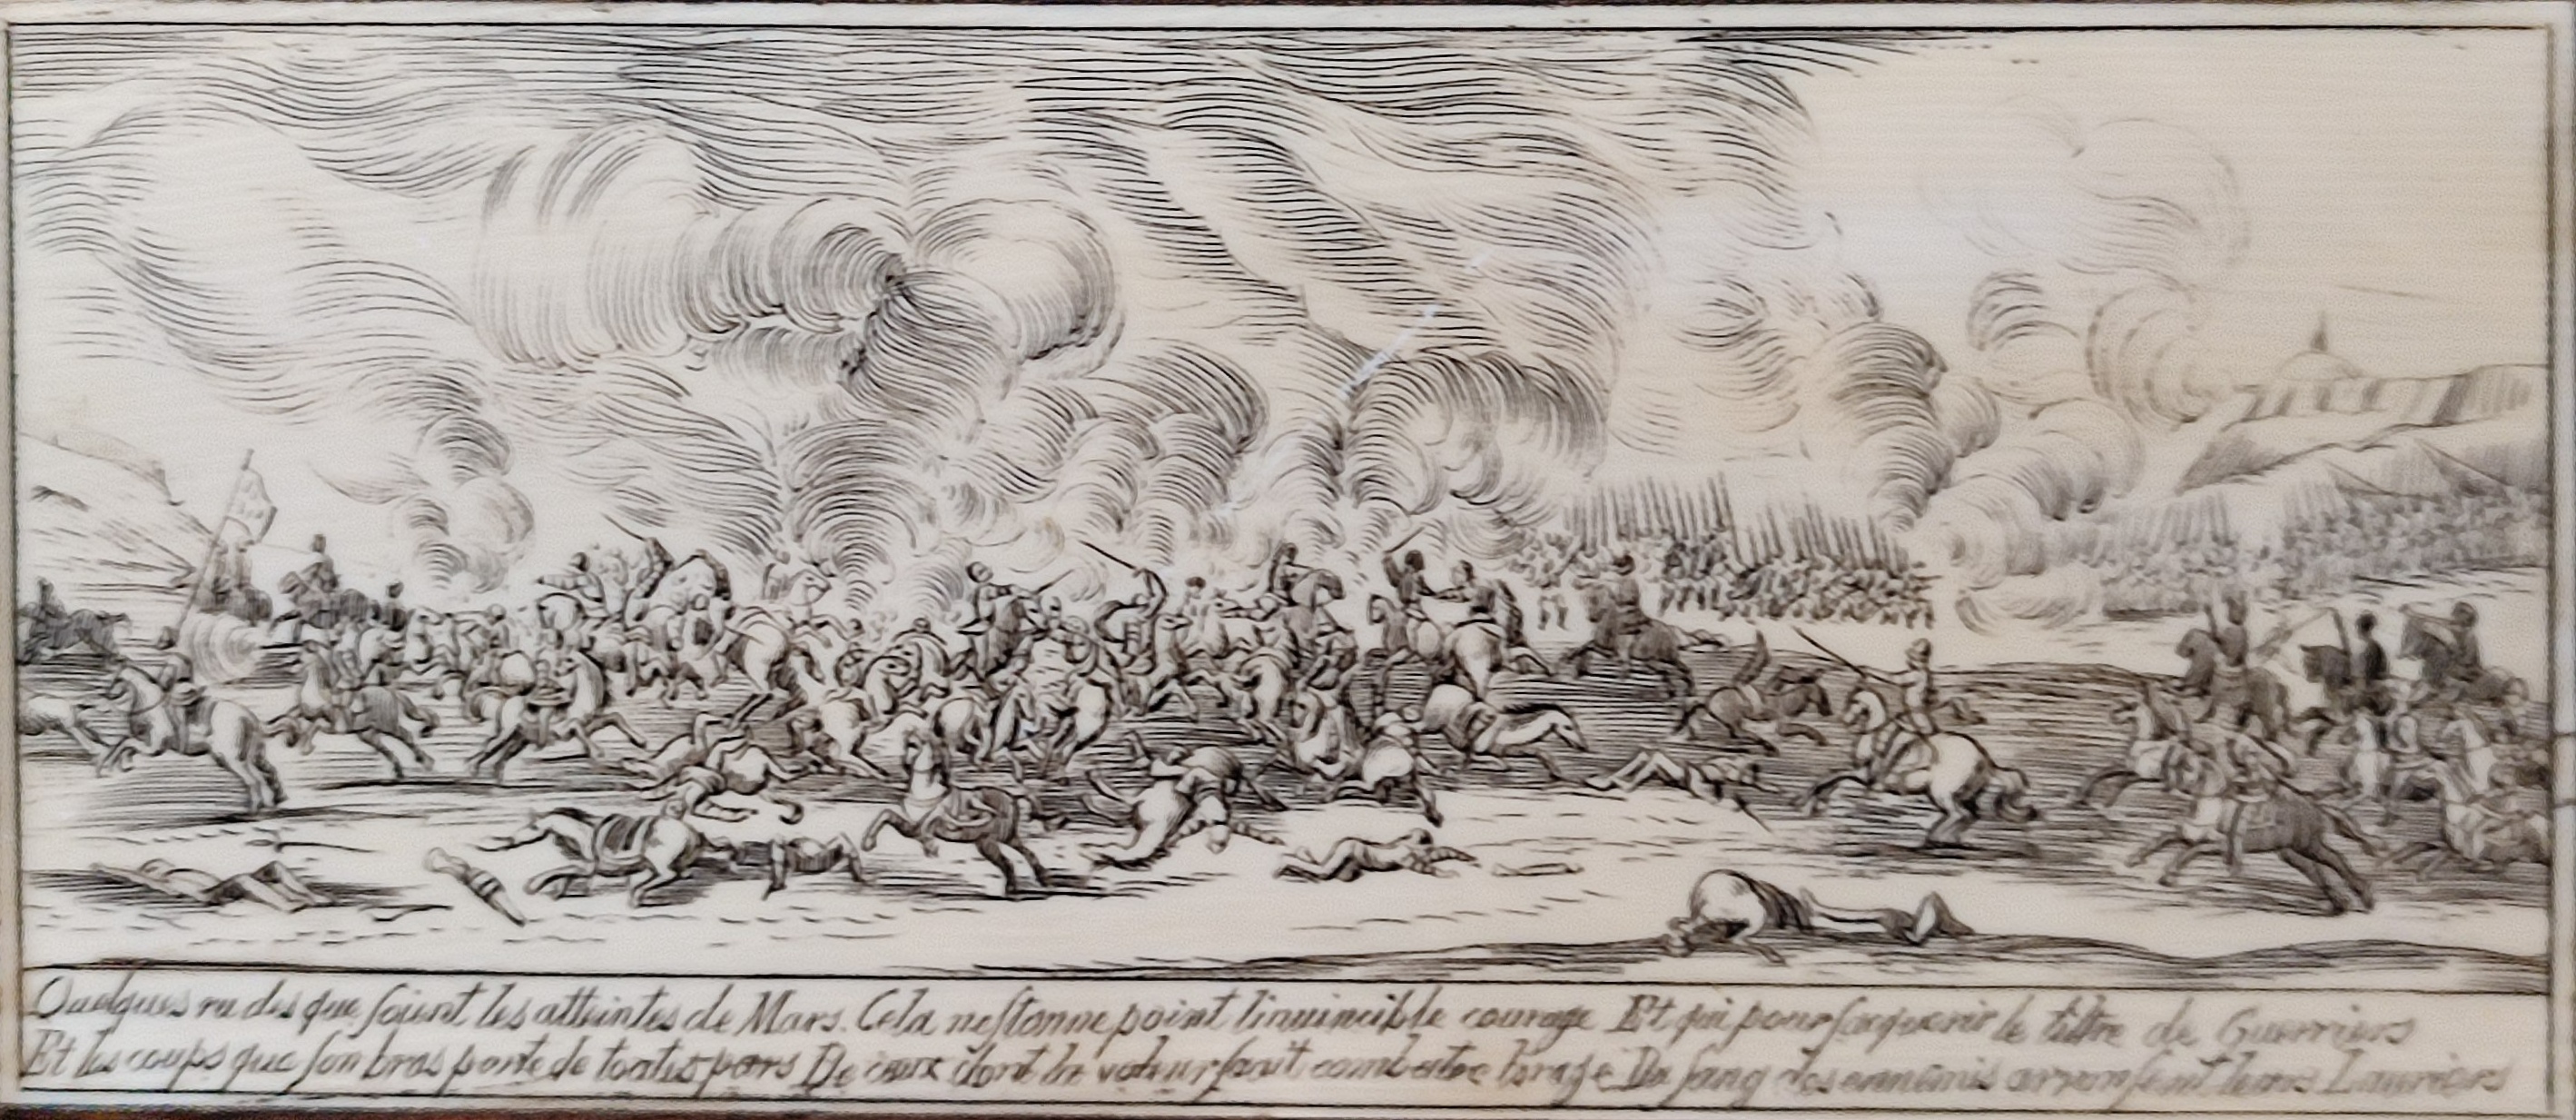 Quelques rudes que soient les atteintes de Mars. Cela nestonne point linuincible courage Et qui pour sacquerir le tiltre de Guerriers
Et les coups que son bras porte de toutes pars De ceux dont la valeur scait combatre lorage Du sang des ennemis arrousent leurs Lauriers